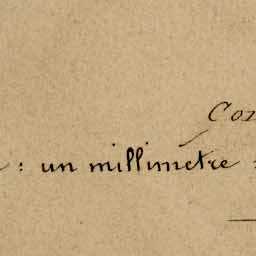 Con
: un millimètre